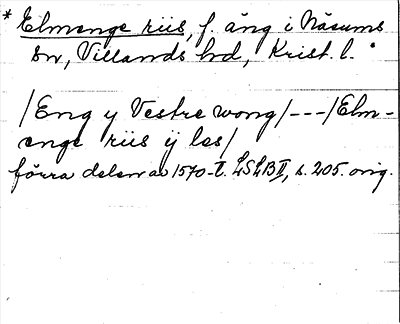 * Elmenge riis, f. äng i Näsums
sn, Villands hd, Krist. l.
/Eng y Vestre wong/---/Elm-
enge riis ÿ les/
förra delen av 1570-t. LSLB II, s. 205. orig.